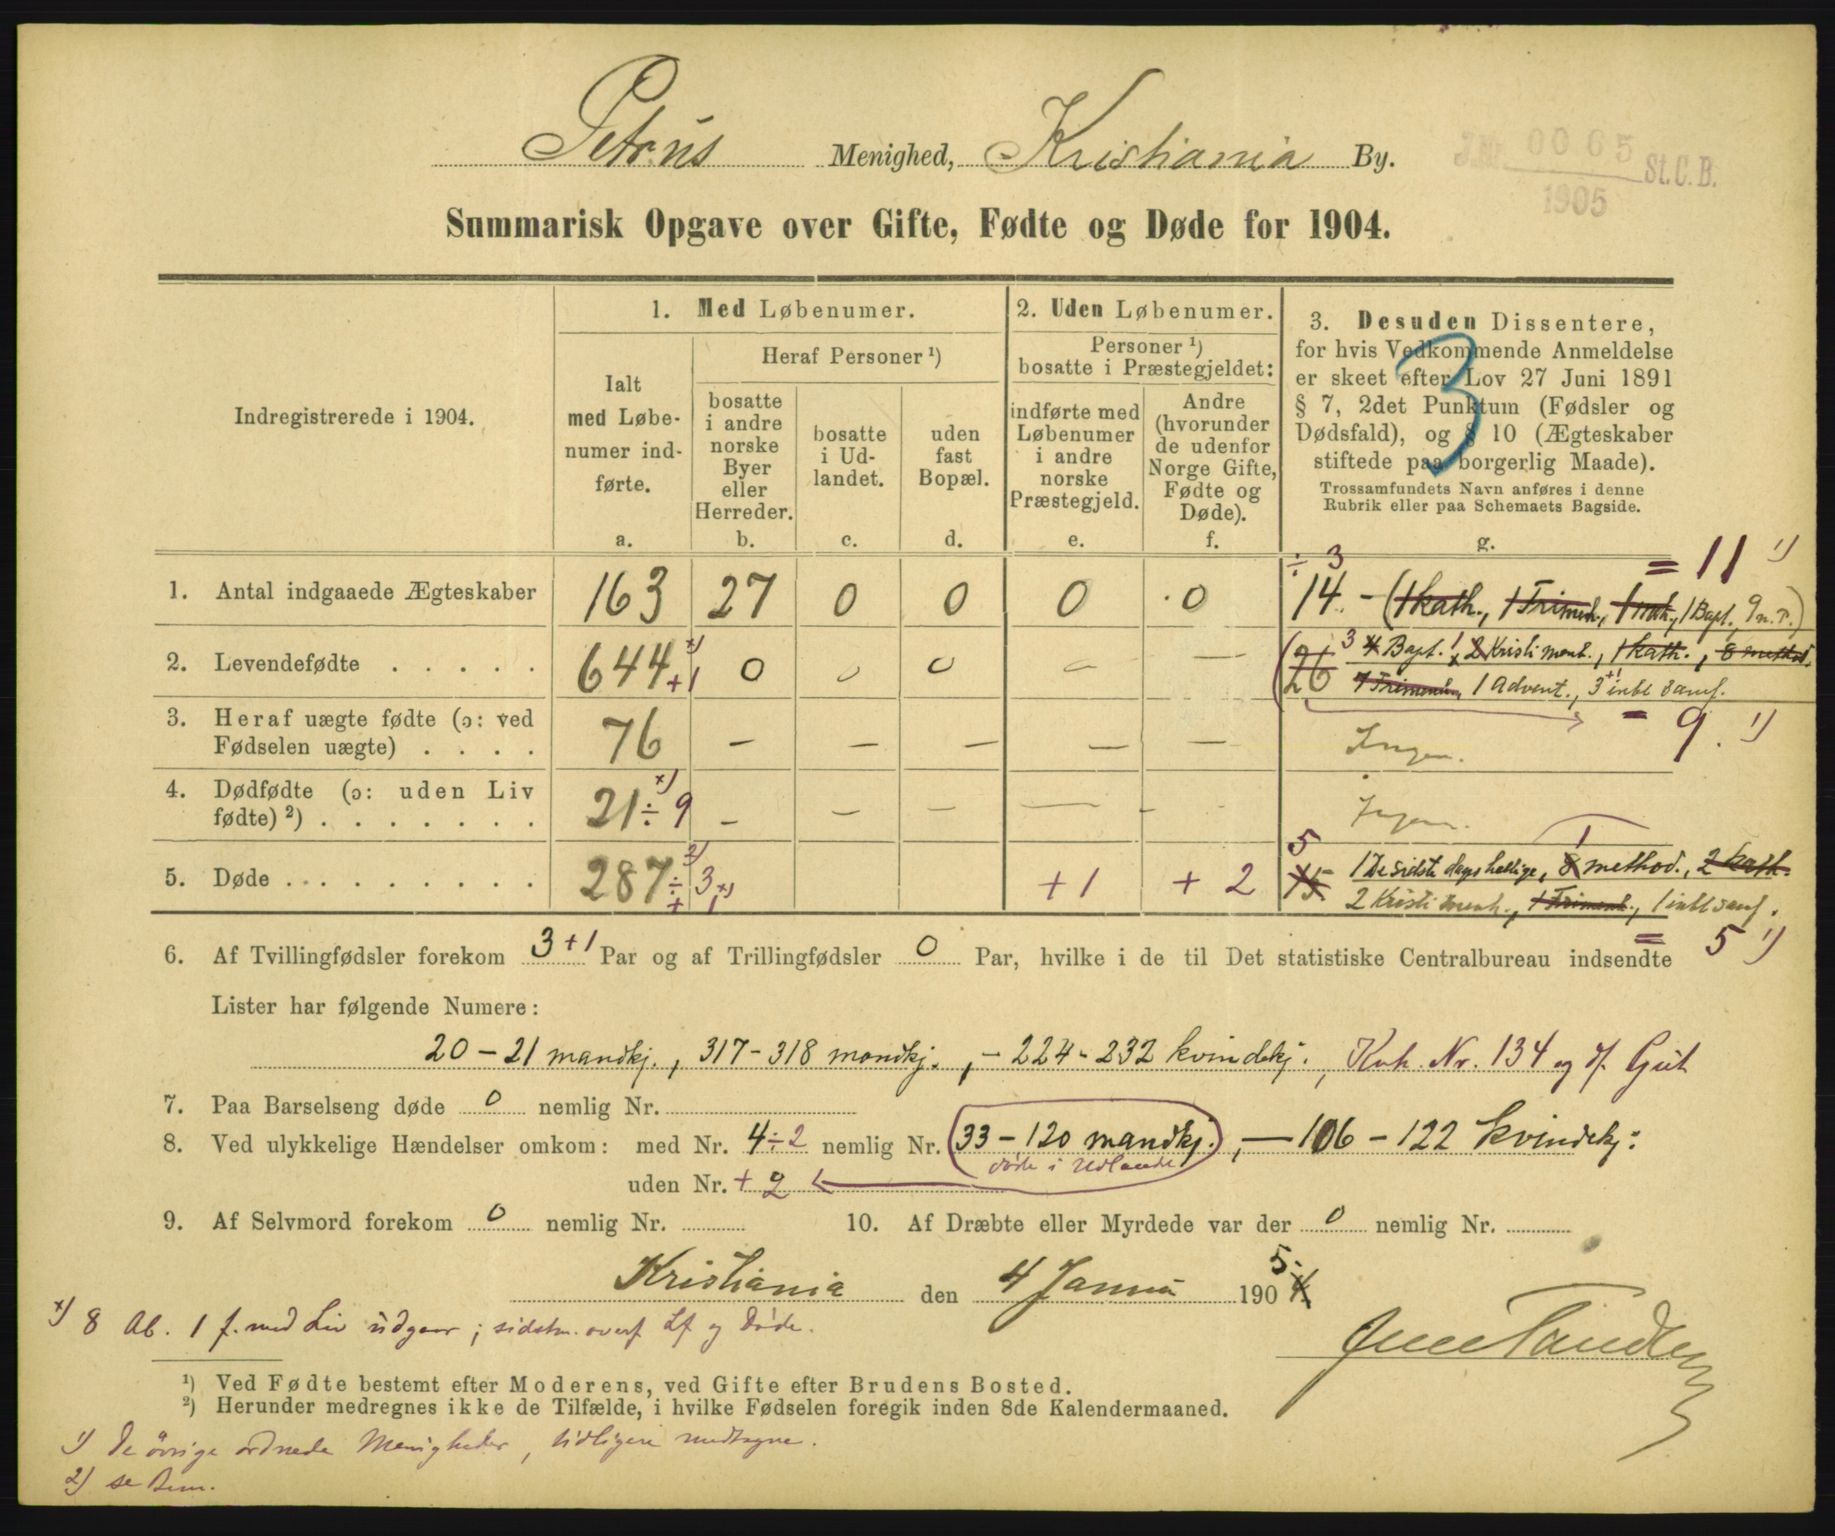 Petrus Menighed, Kristiania By.
J.Nr. 0065 St.C.B.
1905
Summarisk Opgave over Gifte, Fødte og Døde for 1904.
Indregistrerede i 1904.
1. Med Løbenumer.
Ialt med Løbe-numer ind-førte.
a.
Heraf Personer ¹)
bosatte i andre norske Byer eller Herreder.
b.
bosatte i Ud-landet.
c.
uden fast Bopæl.
d.
2. Uden Løbenumer.
Personer ¹)
bosatte i Præstegjeldet:
indførte med Løbenumer i andre norske Præstegjeld.
e.
Andre (hvorunder de udenfor Norge Gifte, Fødte og Døde).
f.
3. Desuden Dissentere,
for hvis Vedkommende Anmeldelse
er skeet efter Lov 27 Juni 1891
§ 7, 2det Punktum (Fødsler og
Dødsfald), og § 10 (Ægteskaber
stiftede paa borgerlig Maade).
Trossamfundets Navn anføres i denne
Rubrik eller paa Schemaets Bagside.
g.
3
÷ 3 = 11 ¹)
1. Antal indgaaede Ægteskaber 163 27 0 0 0 0 14 - (1 kath., 1 Frimen., 1 kath., 1 Bapt., 9 n. P.)
2. Levendefødte . . . . . 644 x) +1 0 0 0 - - 26 3 4 Bapt. 1 2 Kristi menh., 1 kath., 8 method.
7 Frimenh., 1 Advent., 3 +1 intl samf.
= 9. ¹)
3. Heraf uægte fødte (ɔ: ved
Fødselen uægte) . . . . 76 — — — — — Ingen.
4. Dødfødte (ɔ: uden Liv
fødte) ²) . . . . . . . 21 ÷ 9 x) — — — — - Ingen.
5. Døde . . . . . . . . . 287 ÷ 3 2) + 1 x) +1 +2 5 15 1 De sidste dages hellige, 8 1 method., 2 kath.
2 Kristi menh., 1 Frimenh., 1 intl samf.
= 5 ¹)
6. Af Tvillingfødsler forekom 3 +1 Par og af Trillingfødsler 0 Par, hvilke i de til Det statistiske Centralbureau indsendte
Lister har følgende Numere:
20 – 21 mandkj., 317 – 318 mandkj., – 224 – 232 kvindekj., Kvk. Nr. 134 og df. Gut
7. Paa Barselseng døde 0 nemlig Nr.
8. Ved ulykkelige Hændelser omkom: med Nr. 4 ÷ 2 nemlig Nr. 33 – 120 mandkj., — 106 – 122 kvindekj:
døde i Udlandet
uden Nr. + 2
9. Af Selvmord forekom 0 nemlig Nr. 10. Af Dræbte eller Myrdede var der 0 nemlig Nr.
Kristiania den 4 Januar 1904 5.
x) 8 Ab. 1 f. med Liv udgaar; sidstn. overf Lf og Døde.
¹) Ved Fødte bestemt efter Moderens, ved Gifte efter Brudens Bosted.
²) Herunder medregnes ikke de Tilfælde, i hvilke Fødselen foregik inden 8de Kalendermaaned.
1) De øvrige ordnede Menigheder, tidligere medtagne.
2) se Bem.